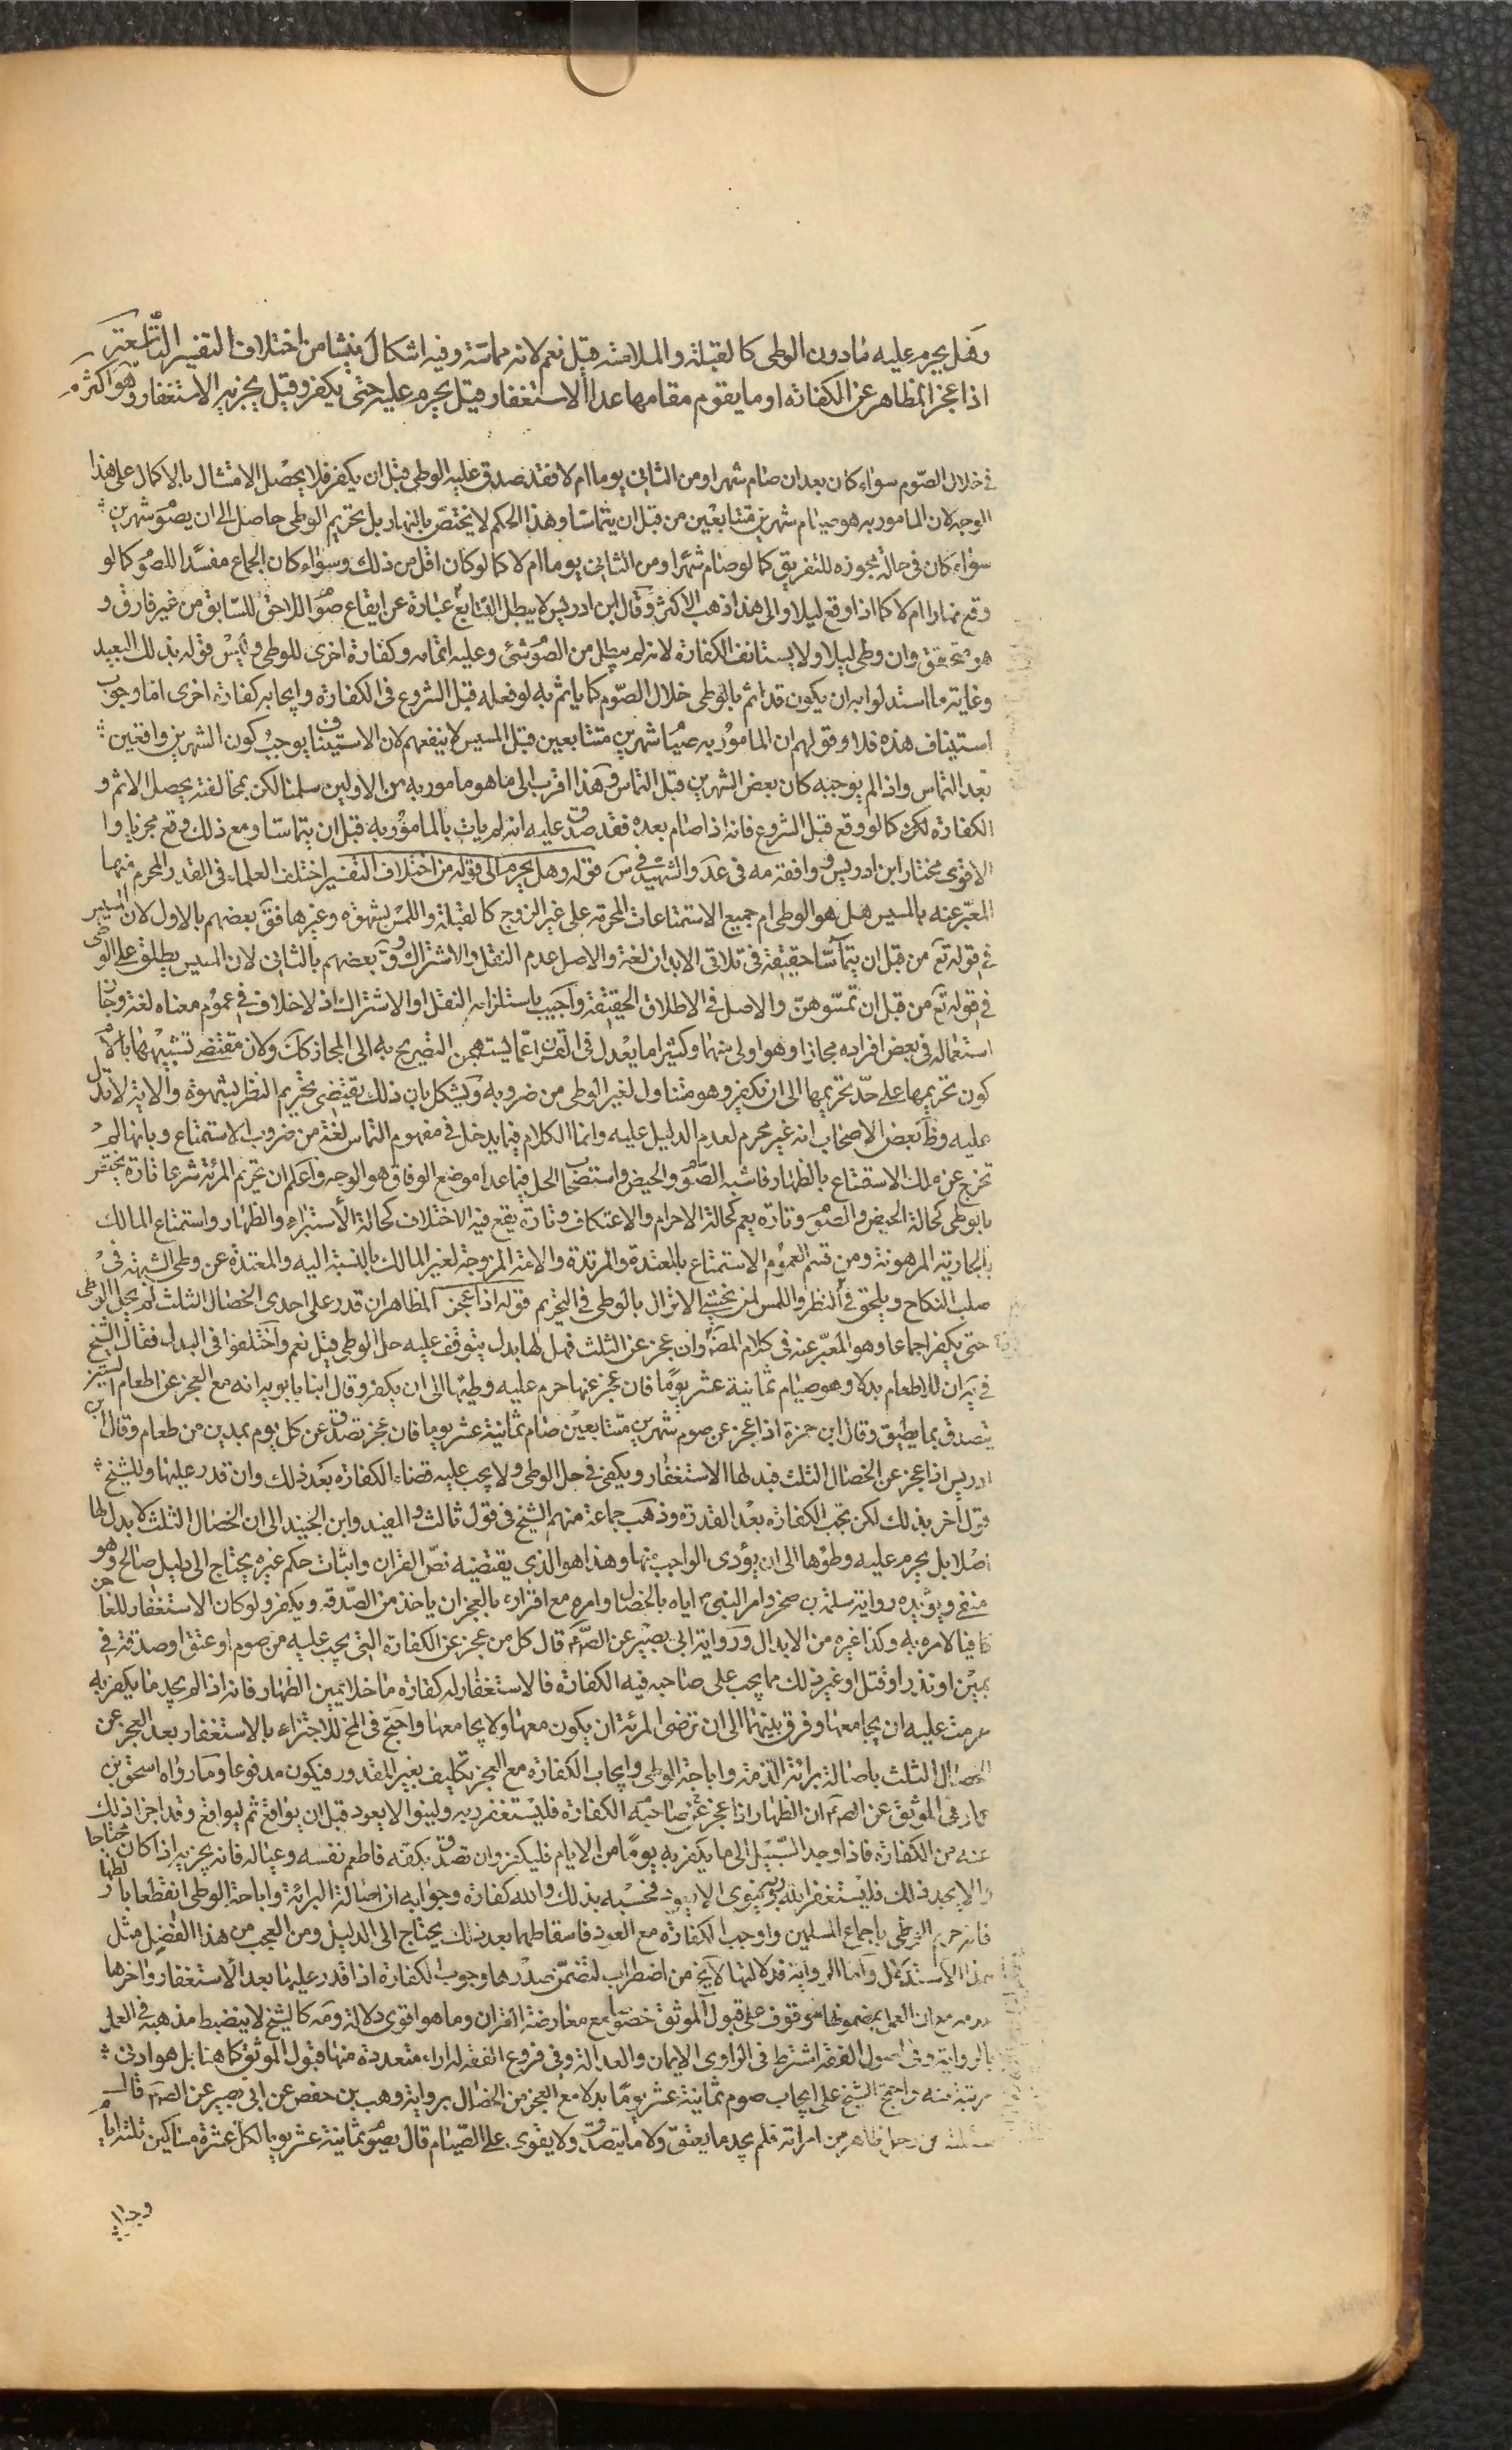 وهل يحرم عليه ما دون الوطى كالقبلة والملامسة قيل نعم لانه مماسة وفيه اشكال ينشا من اختلاف التفسير التاسعة
اذا عجز المظاهر عن الكفارة او ما يقوم مقامها عدا الاستغفار قيل يحرم عليه حتى يكفر وقيل يجزيه الاستغفار وهو اكثر
في خلال الصوم سواء كان بعد ان صام شهرا ومن الثاني يوما ام لا فقد صدق عليه الوطى قبل ان يكفر فلا يحصل الامتثال بالاكمال على هذا
الوجه لان المامور به هو صيام شهرين متتابعين من قبل ان يتماسا وهذا الحكم لا يختص بالنهار بل تحريم الوطى حاصل الى ان يصوم شهرين
سواء كان في حالة مجوزه للتفريق كما لو صام شهرا ومن الثاني يوما ام لا كما لو كان اقل من ذلك وسواء كان الجماع مفسدا للصوم كما لو
وقع نهارا ام لا كما اذا وقع ليلا والى هذا ذهب الاكثر وقال ابن ادريس لا يبطل التتابع عبارة عن ايقاع صوم اللاحق للسابق من غير فارق و
هو متحقق وان وطى ليلا ولا يستانف الكفارة لانه لم يبطل من الصوم شئ وعليه اتمامه وكفارة اخرى للوطى وليس قوله بذلك البعيد
وغاية ما استدلوا به ان يكون قد اثم بالوطى خلال الصوم كما ياثم به لو فعله قبل الشروع في الكفارة وايجابه كفارة اخرى اما وجوب
استيناف هذه فلا وقولهم ان المامور به صيام شهرين متتابعين قبل المسيس لا ينفعهم لان الاستيناف يوجب كون الشهرين واقعين
بعد التماس واذا لم يوجبه كان بعض الشهرين قبل التماس وهذا اقرب الى ما هو مامور به من الاولين سلمنا لكن بمخالفته يحصل الاثم و
الكفارة لكن كما لو وقع قبل الشروع فانه اذا صام بعده فقد صدق عليه انه لم يات بالمامور به قبل ان يتماسا ومع ذلك وقع مجزيا و
الاقوى مختار ابن ادريس ووافقه مه في عد والشهيد في س قوله وهل يحرم الى قوله من اختلاف التفسير اختلف العلماء في القدر المحرم منها
المعبر عنه بالمسيس هل هو الوطى ام جميع الاستمتاعات المحرمة على غير الزوج كالقبلة واللمس بشهوة وغيرها فق بعضهم بالاول لان المسيس
في قوله تع من قبل ان يتماسا حقيقة في تلاقى الابدان لغة والاصل عدم النقل والاشتراك وق بعضهم بالثاني لان المسيس يطلق على الوطى
في قوله تع من قبل ان تمسوهن والاصل في الاطلاق الحقيقة واجيب باستلزامه النقل او الاشتراك اذ لا خلاف في عموم معناه لغة وجاز
استعماله في بعض افراده مجازا وهو اولى منهما وكثيرا ما يعدل في القران عما يستهجن التصريح به الى المجاز كك ولان مقتضى تشبيهها بالام
كون تحريمها على حد تحريمها الى ان يكفر وهو متناول لغير الوطى من ضروبه ويشكل بان ذلك يقتضى تحريم النظر بشهوة والاية لا تدل
عليه وظ بعض الاصحاب انه غير محرم لعدم الدليل عليه وانما الكلام فيما يدخل في مفهوم التماس لغة من ضروب الاستمتاع وبانها لم
تخرج عن ملك الاستمتاع بالظهار فاشبه الصوم والحيض واستصحاب الحل فيما عدا موضع الوفاق هو الوجه واعلم ان تحريم المرئة شرعا تارة يختص
بالوطى كحالة الحيض والصوم وتارة يعم كحالة الاحرام والاعتكاف وتارة يقع فيه الاختلاف كحالة الأستبراء والظهار واستمتاع المالك
بالجارية المرهونة ومن قسم العموم الاستمتاع بالمعتدة والمرتدة والامة المزوجة لغير المالك بالنسبة اليه والمعتدة عن وطى الشبهة في
صلب النكاح ويلحق في النظر واللمس لمن يخشى الانزال بالوطى في التحريم قوله اذا عجز المظاهر ان قدر على احدى الخصال الثلث لم يحل الوطى
حتى يكفر اجماعا وهو المعبر عنه في كلام المصر وان عجز عن الثلث فهل لها بدل يتوقف عليه حل الوطى قيل نعم واختلفوا في البدل فقال الشيخ
في يه ان للاطعام بدلا وهو صيام ثمانية عشر يوما فان عجز عنها حرم عليه وطيها الى ان يكفر وقال ابنا بابويه انه مع العجز عن اطعام الستين
يتصدق بما يطيق وقال ابن حمزة اذا عجز عن صوم شهرين متتابعين صام ثمانية عشر يوما فان عجز تصدق عن كل يوم بمدين من طعام وقال ابن
ادريس اذا عجز عن الخصال الثلث فبدلها الاستغفار ويكفى في حل الوطى ولا يجب عليه قضاء الكفارة بعد ذلك وان قدر عليها وللشيخ
قول اخر بذلك لكن تجب الكفارة بعد القدرة وذهب جماعة منهم الشيخ في قول ثالث والمفيد وابن الجنيد الى ان الخصال الثلث لا بدل لها
اصلا بل يحرم عليه وطؤها الى ان يؤدى الواجب منها وهذا هو الذي يقتضيه نص القران واثبات حكم غيره يحتاج الى دليل صالح وهو
منفى ويؤيده رواية سلمة بن صخر وامر النبى ص اياه بالخصال وامره مع اقراره بالعجز ان ياخذ من الصدقة ويكفر ولو كان الاستغفار للعاجز
كافيا لامره به وكذا غيره من الابدال ورواية ابي بصير عن الصم قال كل من عجز عن الكفارة التي يجب عليه من صوم او عتق او صدقة في
يمين او نذر او قتل او غير ذلك مما يجب على صاحبه فيه الكفارة فالاستغفار له كفارة ما خلا يمين الظهار فانه اذا لم يجد ما يكفر به
حرمت عليه ان يجامعها وفرق بينهما الى ان ترضى المرئة ان يكون معها ولا يجامعها واحتج في المخ للاجتزاء بالاستغفار بعد العجز عن
الخصال الثلث باصالة برائة الذمة واباحة الوطى وايجاب الكفارة مع العجز تكليف بغير المقدور فيكون مدفوعا وما رواه اسحق بن
عمار في الموثق عن الصم ان الظهار اذا عجز عنه صاحبه الكفارة فليستغفر ربه ولينو الا يعود قبل ان يواقع ثم ليواقع وقد اجزا ذلك
عنه من الكفارة فاذا وجد السبيل الى ما يكفر به يوما من الايام فليكفر وان تصدق بكفه فاطعم نفسه وعياله فانه يجزيه اذا كان محتاجا
والا يجد ذلك فليستغفر الله ربه وينوى الا يعود فحسبه بذلك والله كفارة وجوابه ان اصالة البرائة واباحة الوطى انقطعا بالظهار
فانه حرم الوطى باجماع المسلمين واوجب الكفارة مع العود فاسقاطهما بعد ذلك يحتاج الى الدليل ومن العجب من هذا الفضل مثل
هذا الاستدلال واما الرواية فدلالتها لا يخ من اضطراب لتضمن صدرها وجوب الكفارة اذا قدر عليها بعد الاستغفار واخرها
عدمه مع ان العمل بمضمونها موقوف على قبول الموثق خصوصا مع معارضة القران وما هو اقوى دلالة ومه كالشيخ لا ينضبط مذهبه في العمل
بالرواية وفي اصول الفقه اشترط في الراوى الايمان والعدالة وفي فروع الفقه له اراء متعددة منها قبول الموثق كما هنا بل هو ادنى
مرتبة منه واحتج الشيخ على ايجاب صوم ثمانية عشر يوما بدلا مع العجز من الخصال برواية وهب بن حفص عن ابي بصير عن الصم قال
سئلته من رجل ظاهر من امراته فلم يجد ما يعتق ولا ما يتصدق ولا يقوى على الصيام قال يصوم ثمانية عشر يوما لكل عشرة مساكين ثلثة ايام